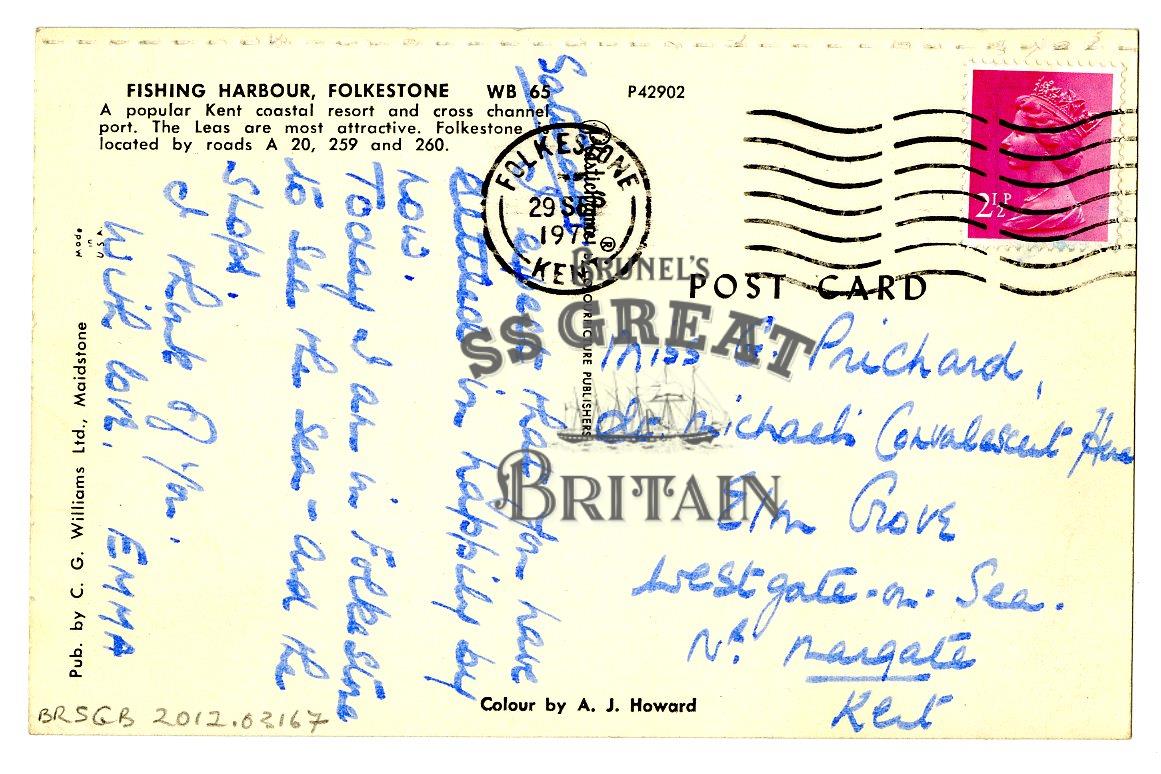 FISHING HARBOUR, FOLKESTONE WB 65
A popular Kent coastal resort and cross channel
port. The Leas are most attractive. Folkestone
located by roads A 20, 259 and 260.
P42902
FOLKESTONE
29 SEP
197
KENT
2½P
POST CARD
Saturday
expect that you have
settled in happily by
now.
Today I am in Folkestone
to see the sea - and the
shops.
I think of you.
With love,
EMMA
Miss E. Prichard,
St. Michael's Convalescent Home
Elm Grove
Westgate-on-Sea.
Nr. Margate
Kent
Made
in
USA
Pub. by C. G. Williams Ltd., Maidstone
Plastichrome ®
COLORPICTURE PUBLISHERS
Colour by A. J. Howard
BRSGB 2012.03167
BRUNEL'S
SS GREAT
BRITAIN